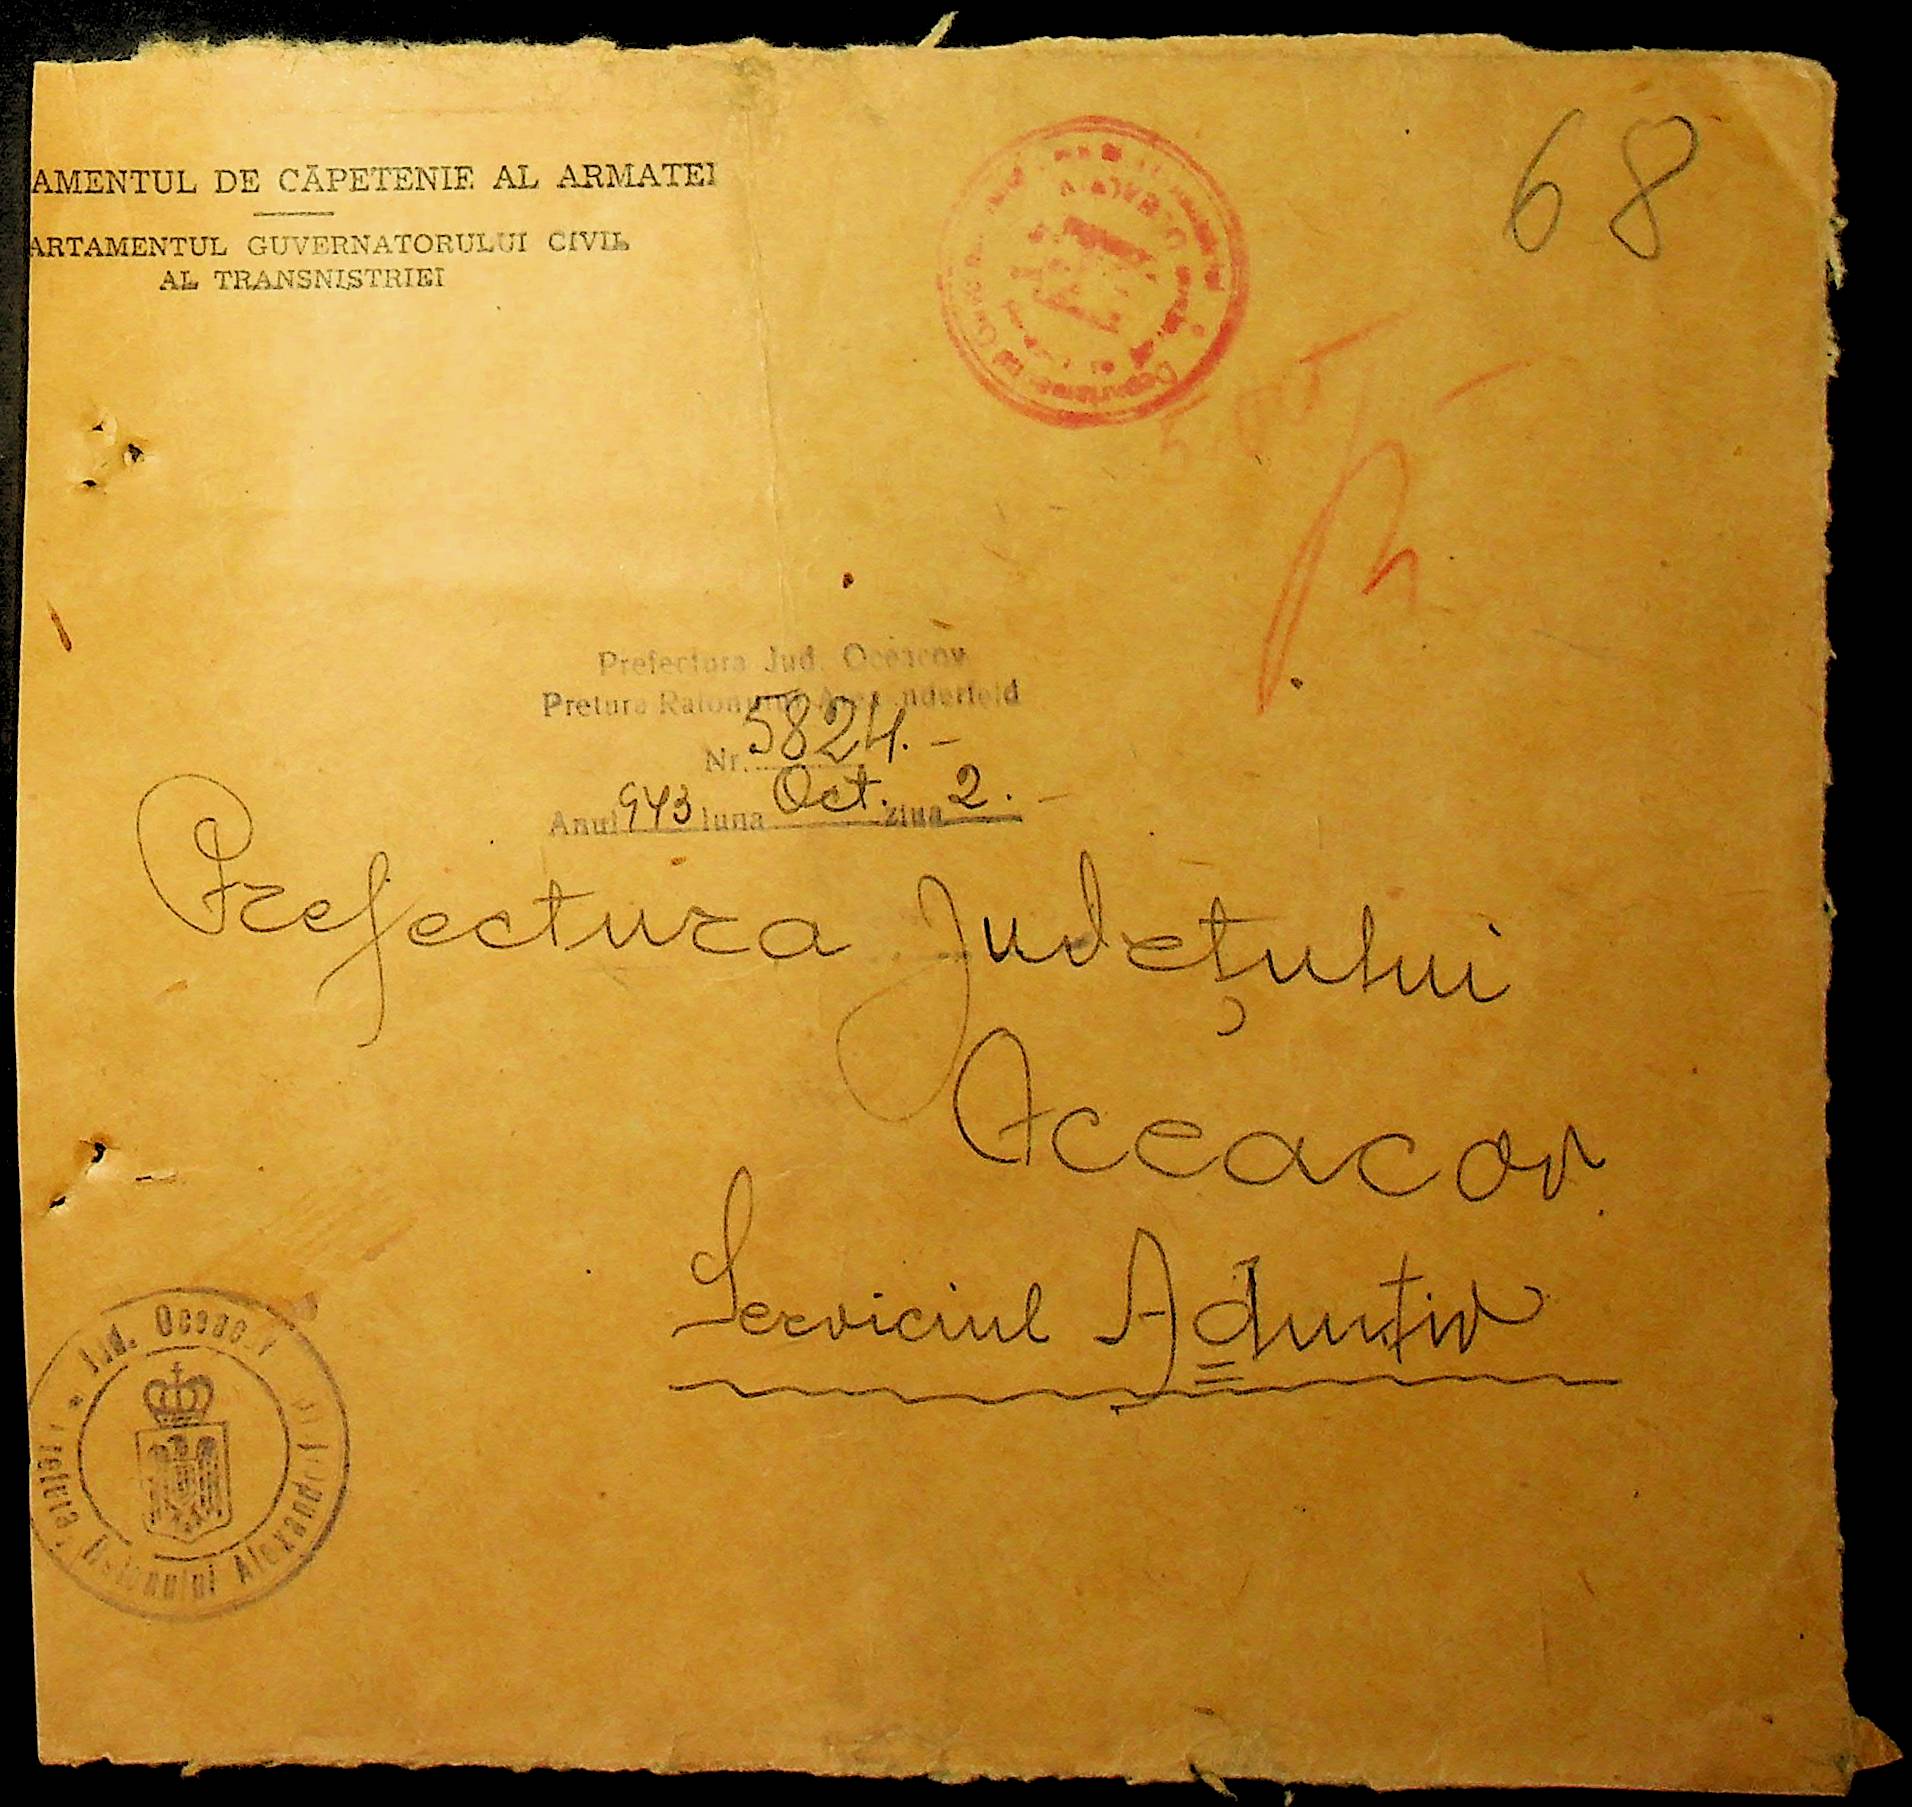 AMENTUL DE CĂPETENIE AL ARMATEI
ARTAMENTUL GUVERNATORULUI CIVIL
AL TRANSNISTRIEI
68
Prefectura Jud. Oceacov
Pretura Raionului
Nr. 5824.-
Anul 943 luna Oct. ziua 2.-
Prefectura Județului
Oceacov
Serviciul
Jud. Oceac
Raionului Alexander